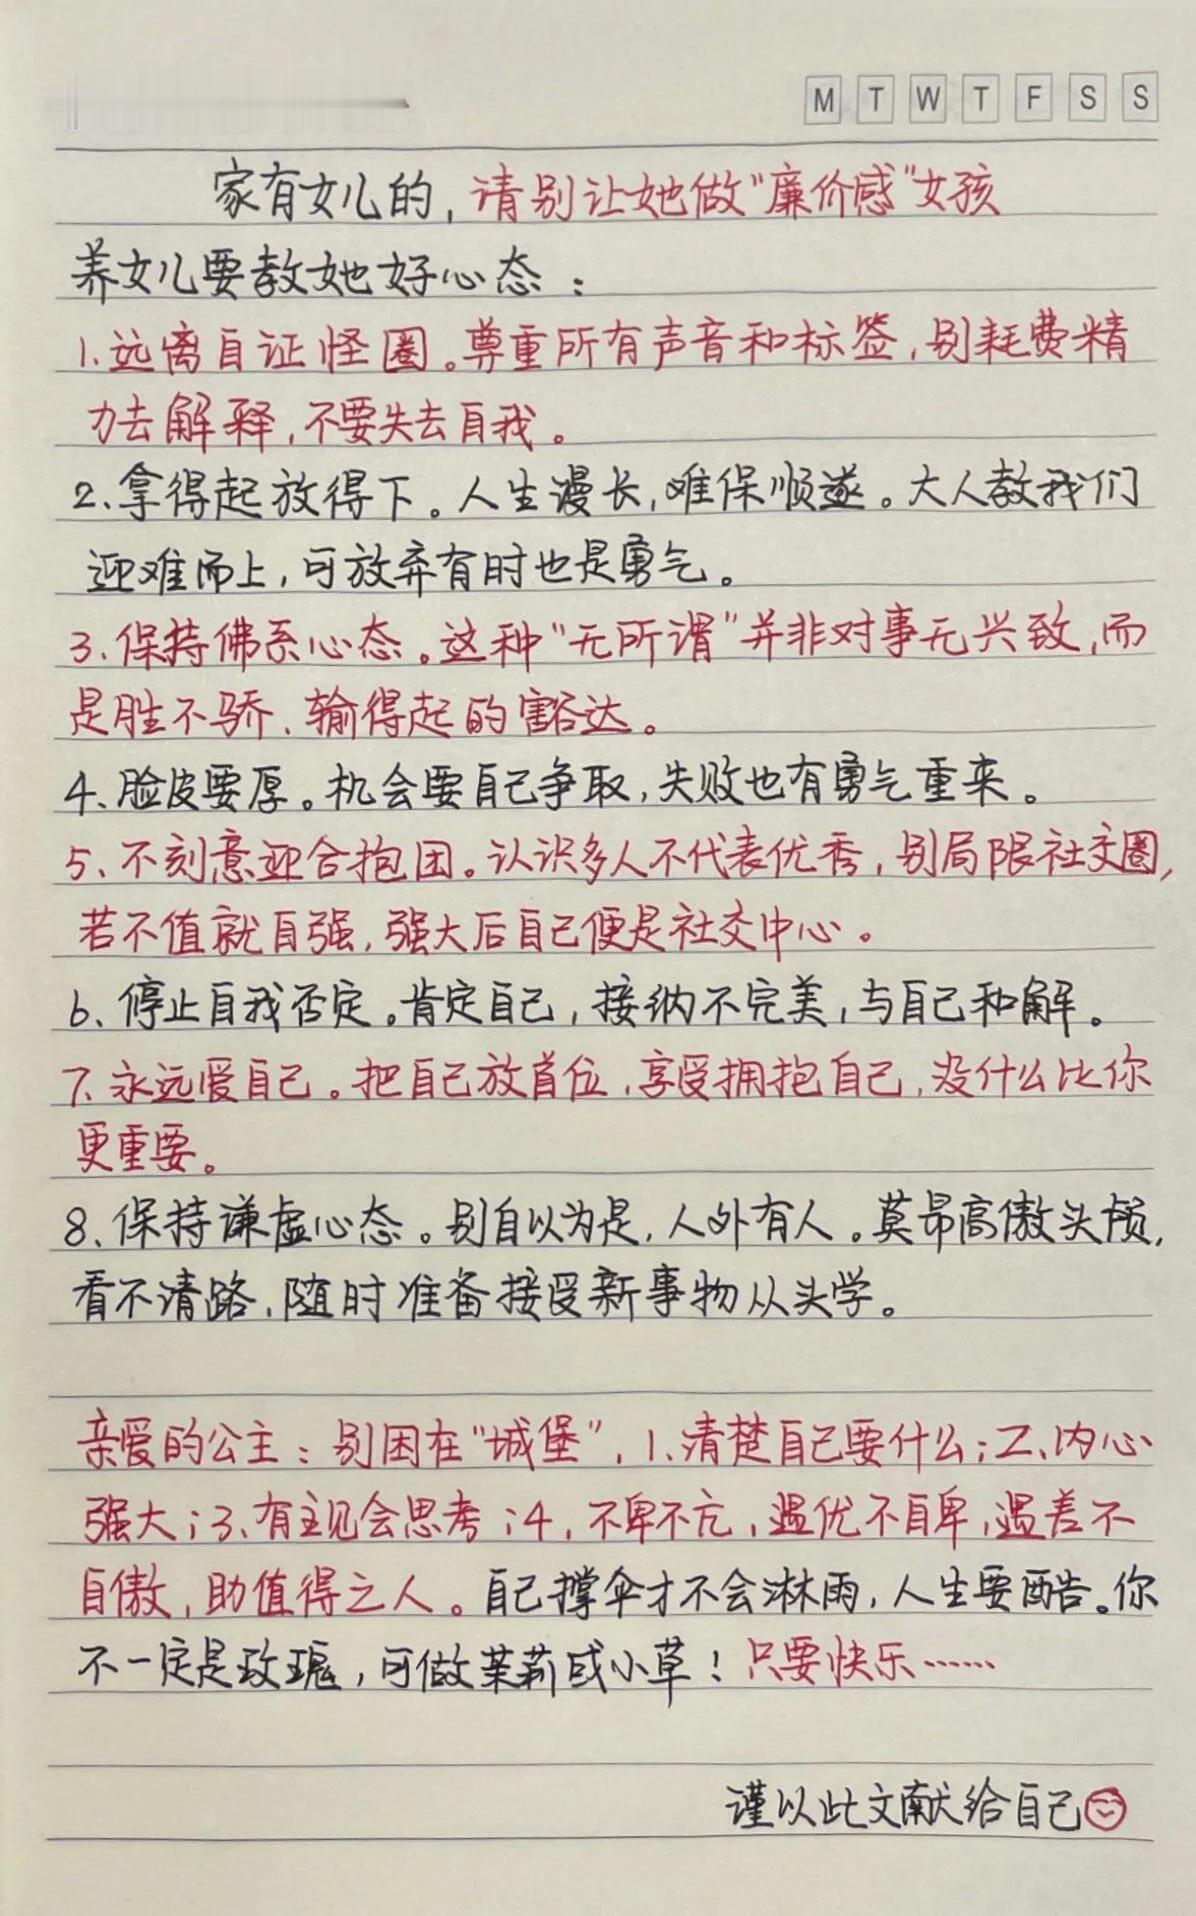 M T W T F S S
家有女儿的，请别让她做“廉价感”女孩
养女儿要教她好心态：
1、远离自证怪圈。尊重所有声音和标签，别耗费精
力去解释，不要失去自我。
2、拿得起放得下。人生漫长，难保顺遂。大人教我们
迎难而上，可放弃有时也是勇气。
3、保持佛系心态。这种“无所谓”并非对事无兴致，而
是胜不骄、输得起的豁达。
4、脸皮要厚。机会要自己争取，失败也有勇气重来。
5、不刻意迎合抱团。认识多人不代表优秀，别局限社交圈，
若不值就自强，强大后自己便是社交中心。
6、停止自我否定。肯定自己，接纳不完美，与自己和解。
7、永远爱自己。把自己放首位，享受拥抱自己，没什么比你
更重要。
8、保持谦虚心态。别自以为是，人外有人。莫昂高傲头颅，
看不清路，随时准备接受新事物从头学。
亲爱的公主：别困在“城堡”，1、清楚自己要什么；2、内心
强大；3、有主见会思考；4，不卑不亢，遇优不自卑，遇差不
自傲，助值得之人。自己撑伞才不会淋雨，人生要酷。你
不一定是玫瑰，可做茉莉或小草！只要快乐……
谨以此文献给自己